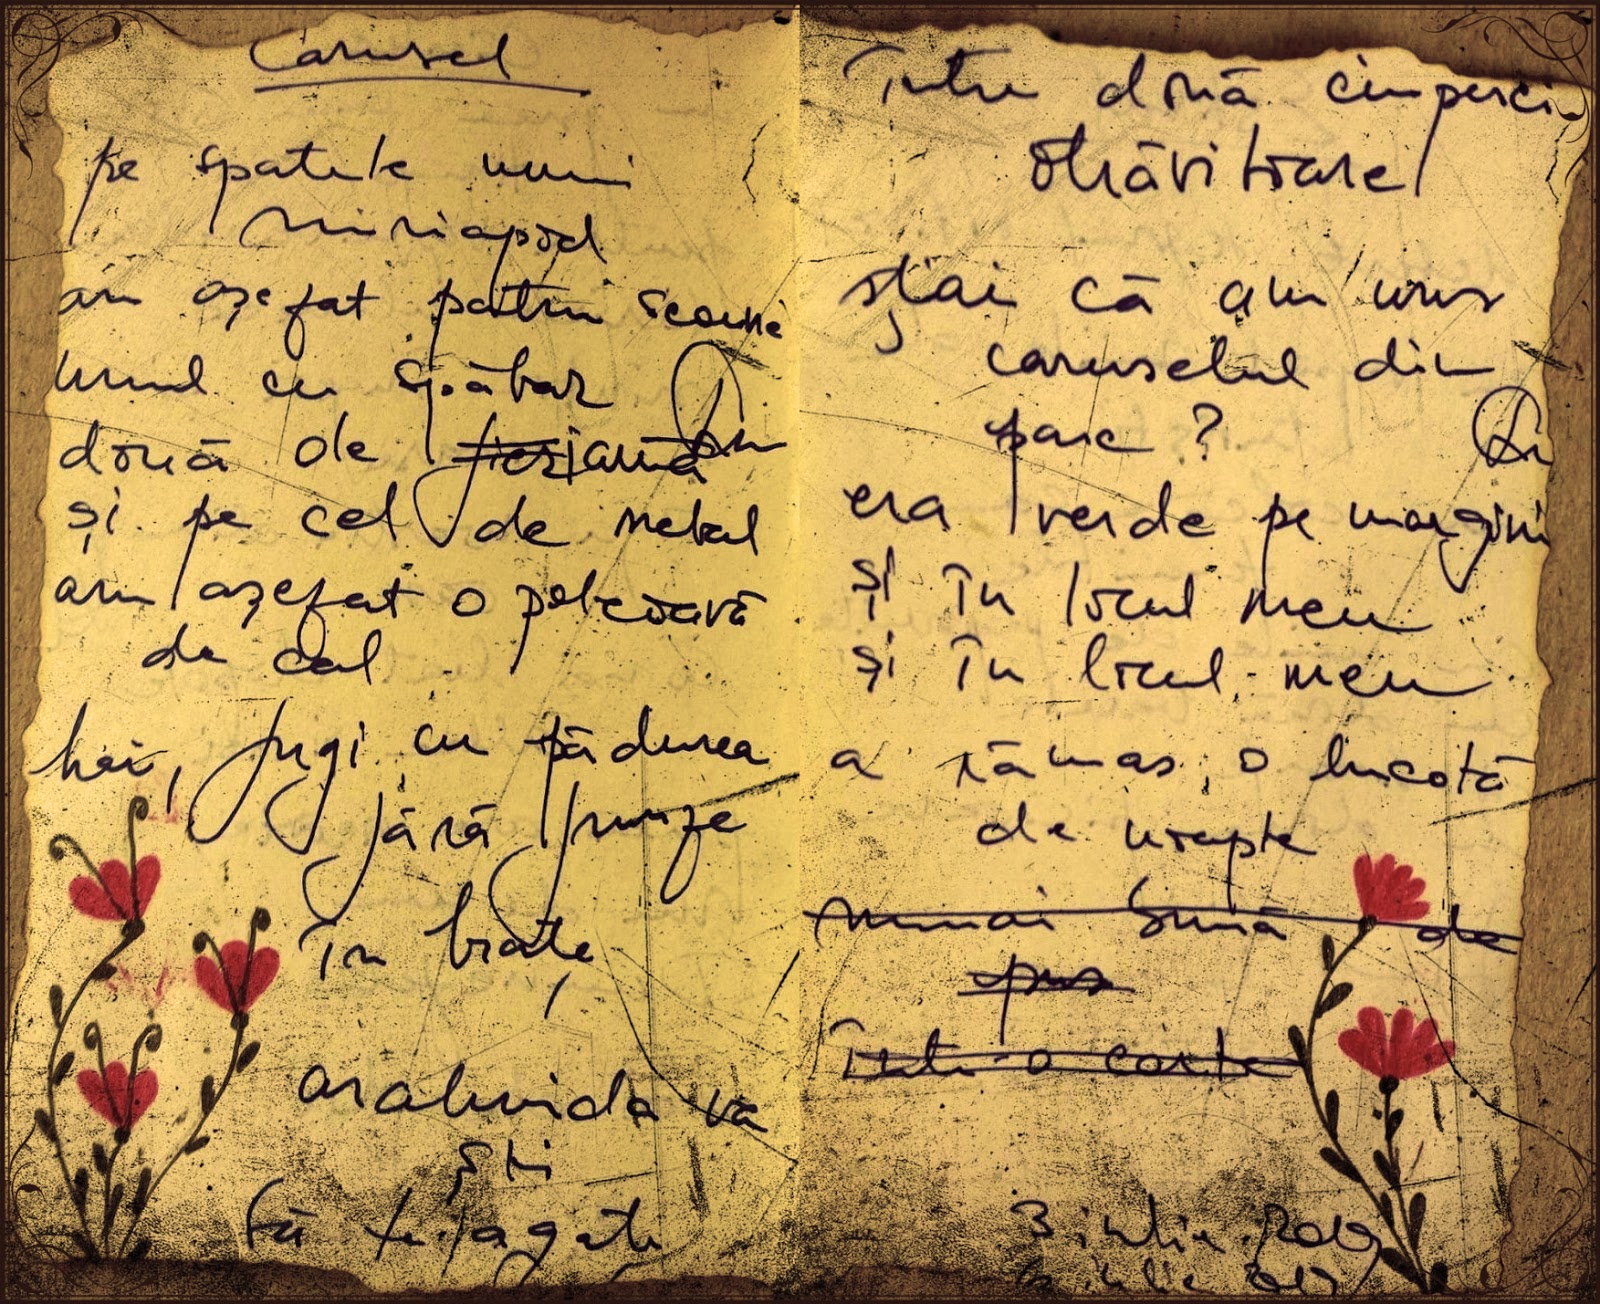 Carusel
pe spatele unui
miriapod
am așezat patru scaune
unul cu spătar
două de
și pe cel de metal
am așezat o potcoavă
de cal
hai, fugi cu pădurea
fără frunze
în brațe,
arahnida va
ști
să te agațe
Între două ciuperci
otrăvitoare
știai că am uns
caruselul din
parc?
era verde pe margini
și în locul meu
și în locul meu
a rămas o bucată
de noapte
numai bună de
pus
într-o carte
3 iulie 2019
3 iulie 2019